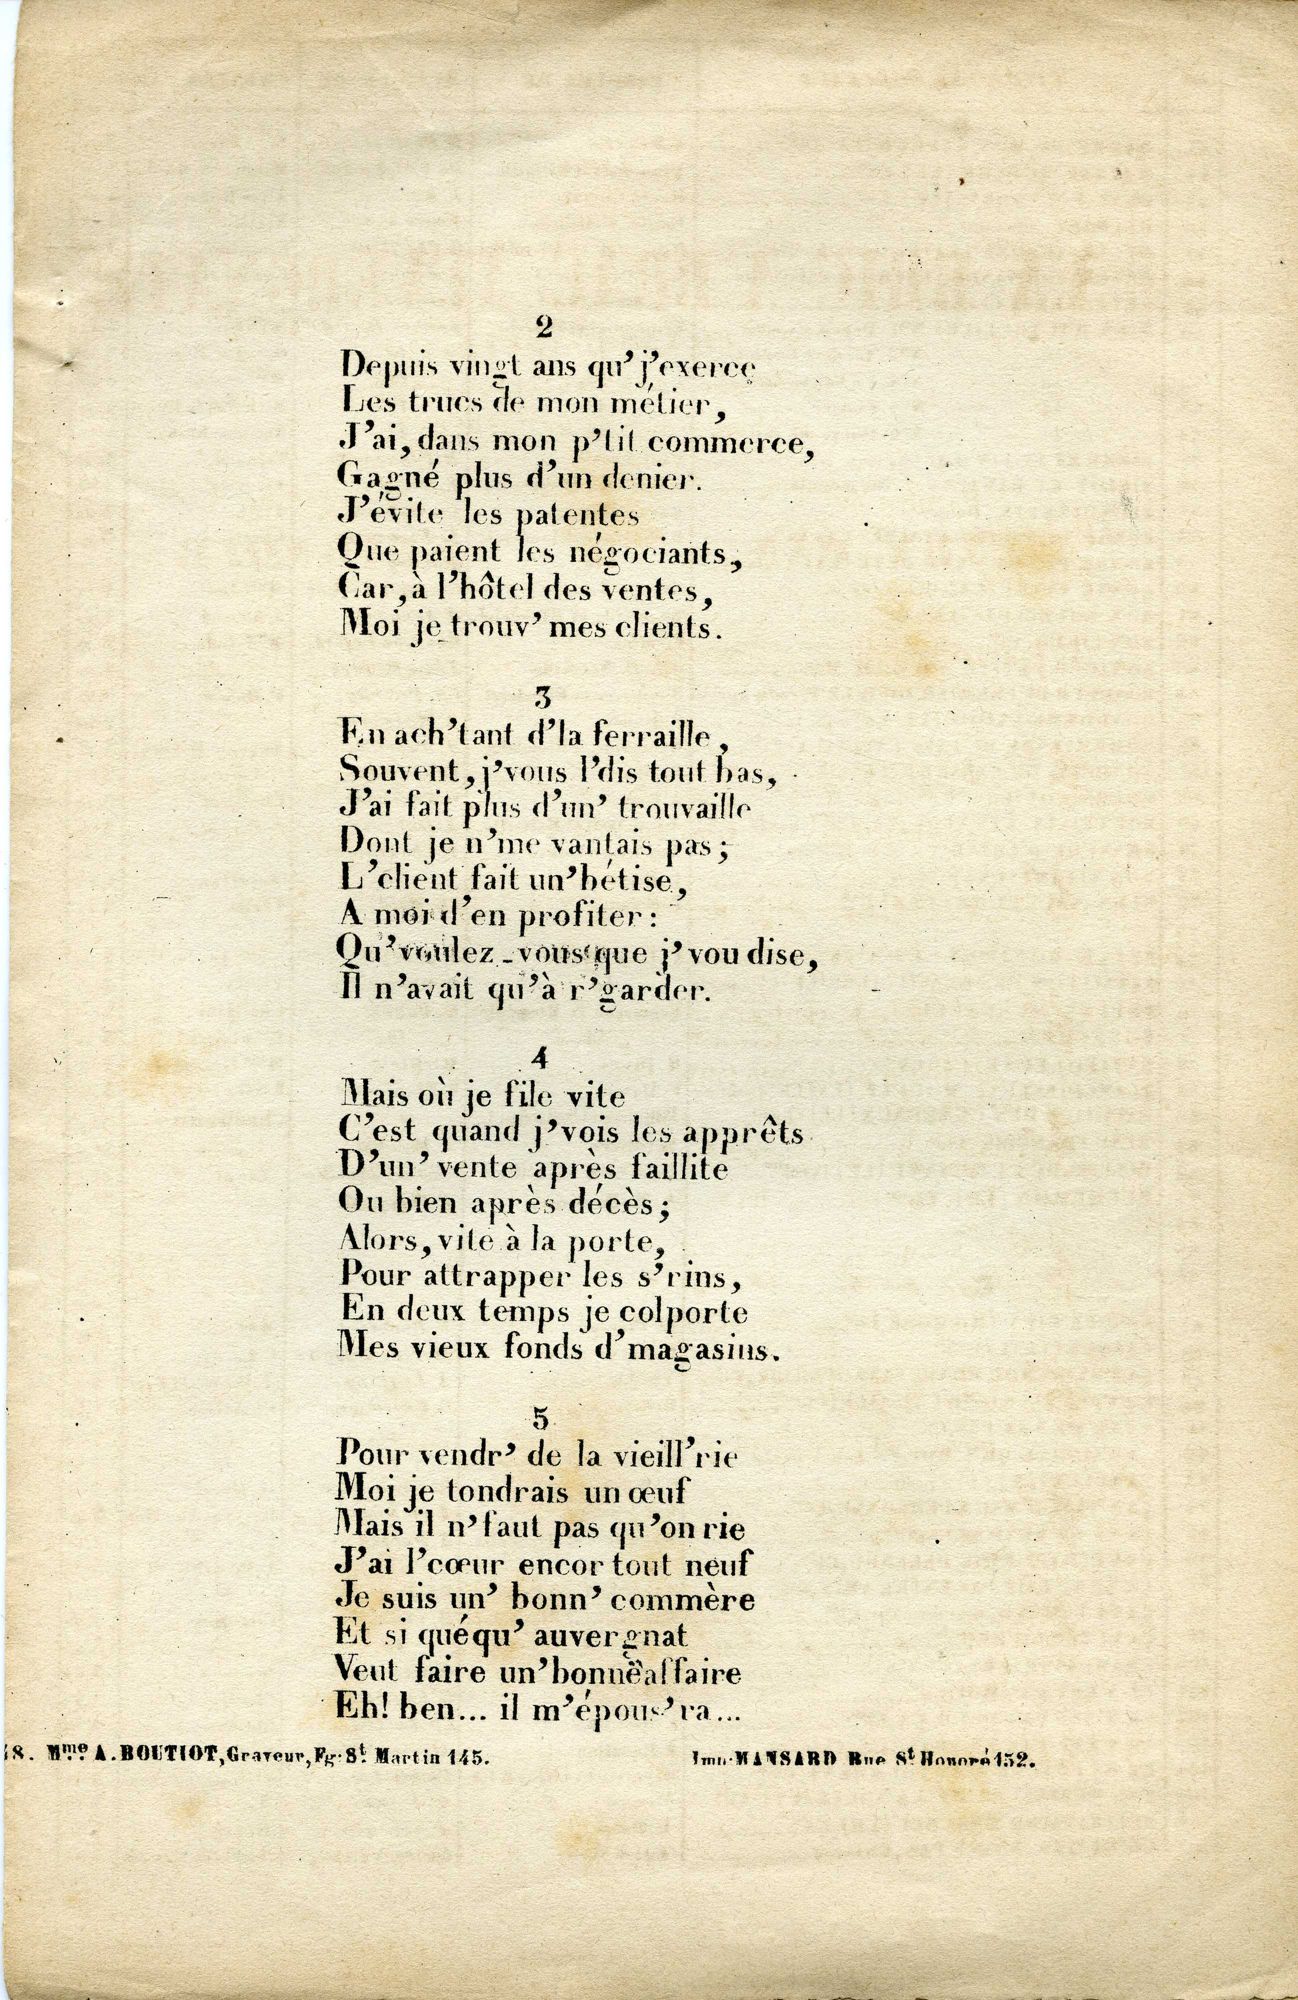 2
Depuis vingt ans qu' j'exerce
Les trucs de mon métier,
J'ai, dans mon p'tit commerce,
Gagné plus d'un denier.
J'évite les patentes
Que paient les négociants,
Car, à l'hôtel des ventes,
Moi je trouv' mes clients.
3
En ach'tant d'la ferraille,
Souvent, j'vous l'dis tout bas,
J'ai fait plus d'un' trouvaille
Dont je n'me vantais pas;
L'client fait un'bétise,
A moi d'en profiter:
Qu'voulez-vous que j'vou dise,
Il n'avait qu'à r'garder.
4
Mais où je file vite
C'est quand j'vois les apprêts
D'un' vente après faillite
Ou bien après décès;
Alors, vite à la porte,
Pour attrapper les s'rins,
En deux temps je colporte
Mes vieux fonds d'magasins.
5
Pour vendr' de la vieill'rie
Moi je tondrais un œuf
Mais il n'faut pas qu'on rie
J'ai l'cœur encor tout neuf
Je suis un' bonn' commère
Et si quéqu' auvergnat
Veut faire un'bonne affaire
Eh! ben... il m'épous'ra...
48. Mme A. BOUTIOT, Graveur, Fg. St. Martin 145.
Imp. MANSARD Rue St Honoré 152.